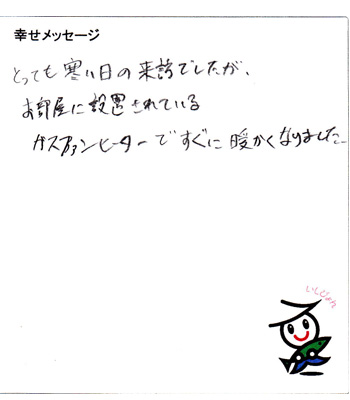 幸せメッセージ
とっても寒い日の来訪でしたが、
お部屋に設置されている
ガスファンヒーターですぐに暖かくなりました。